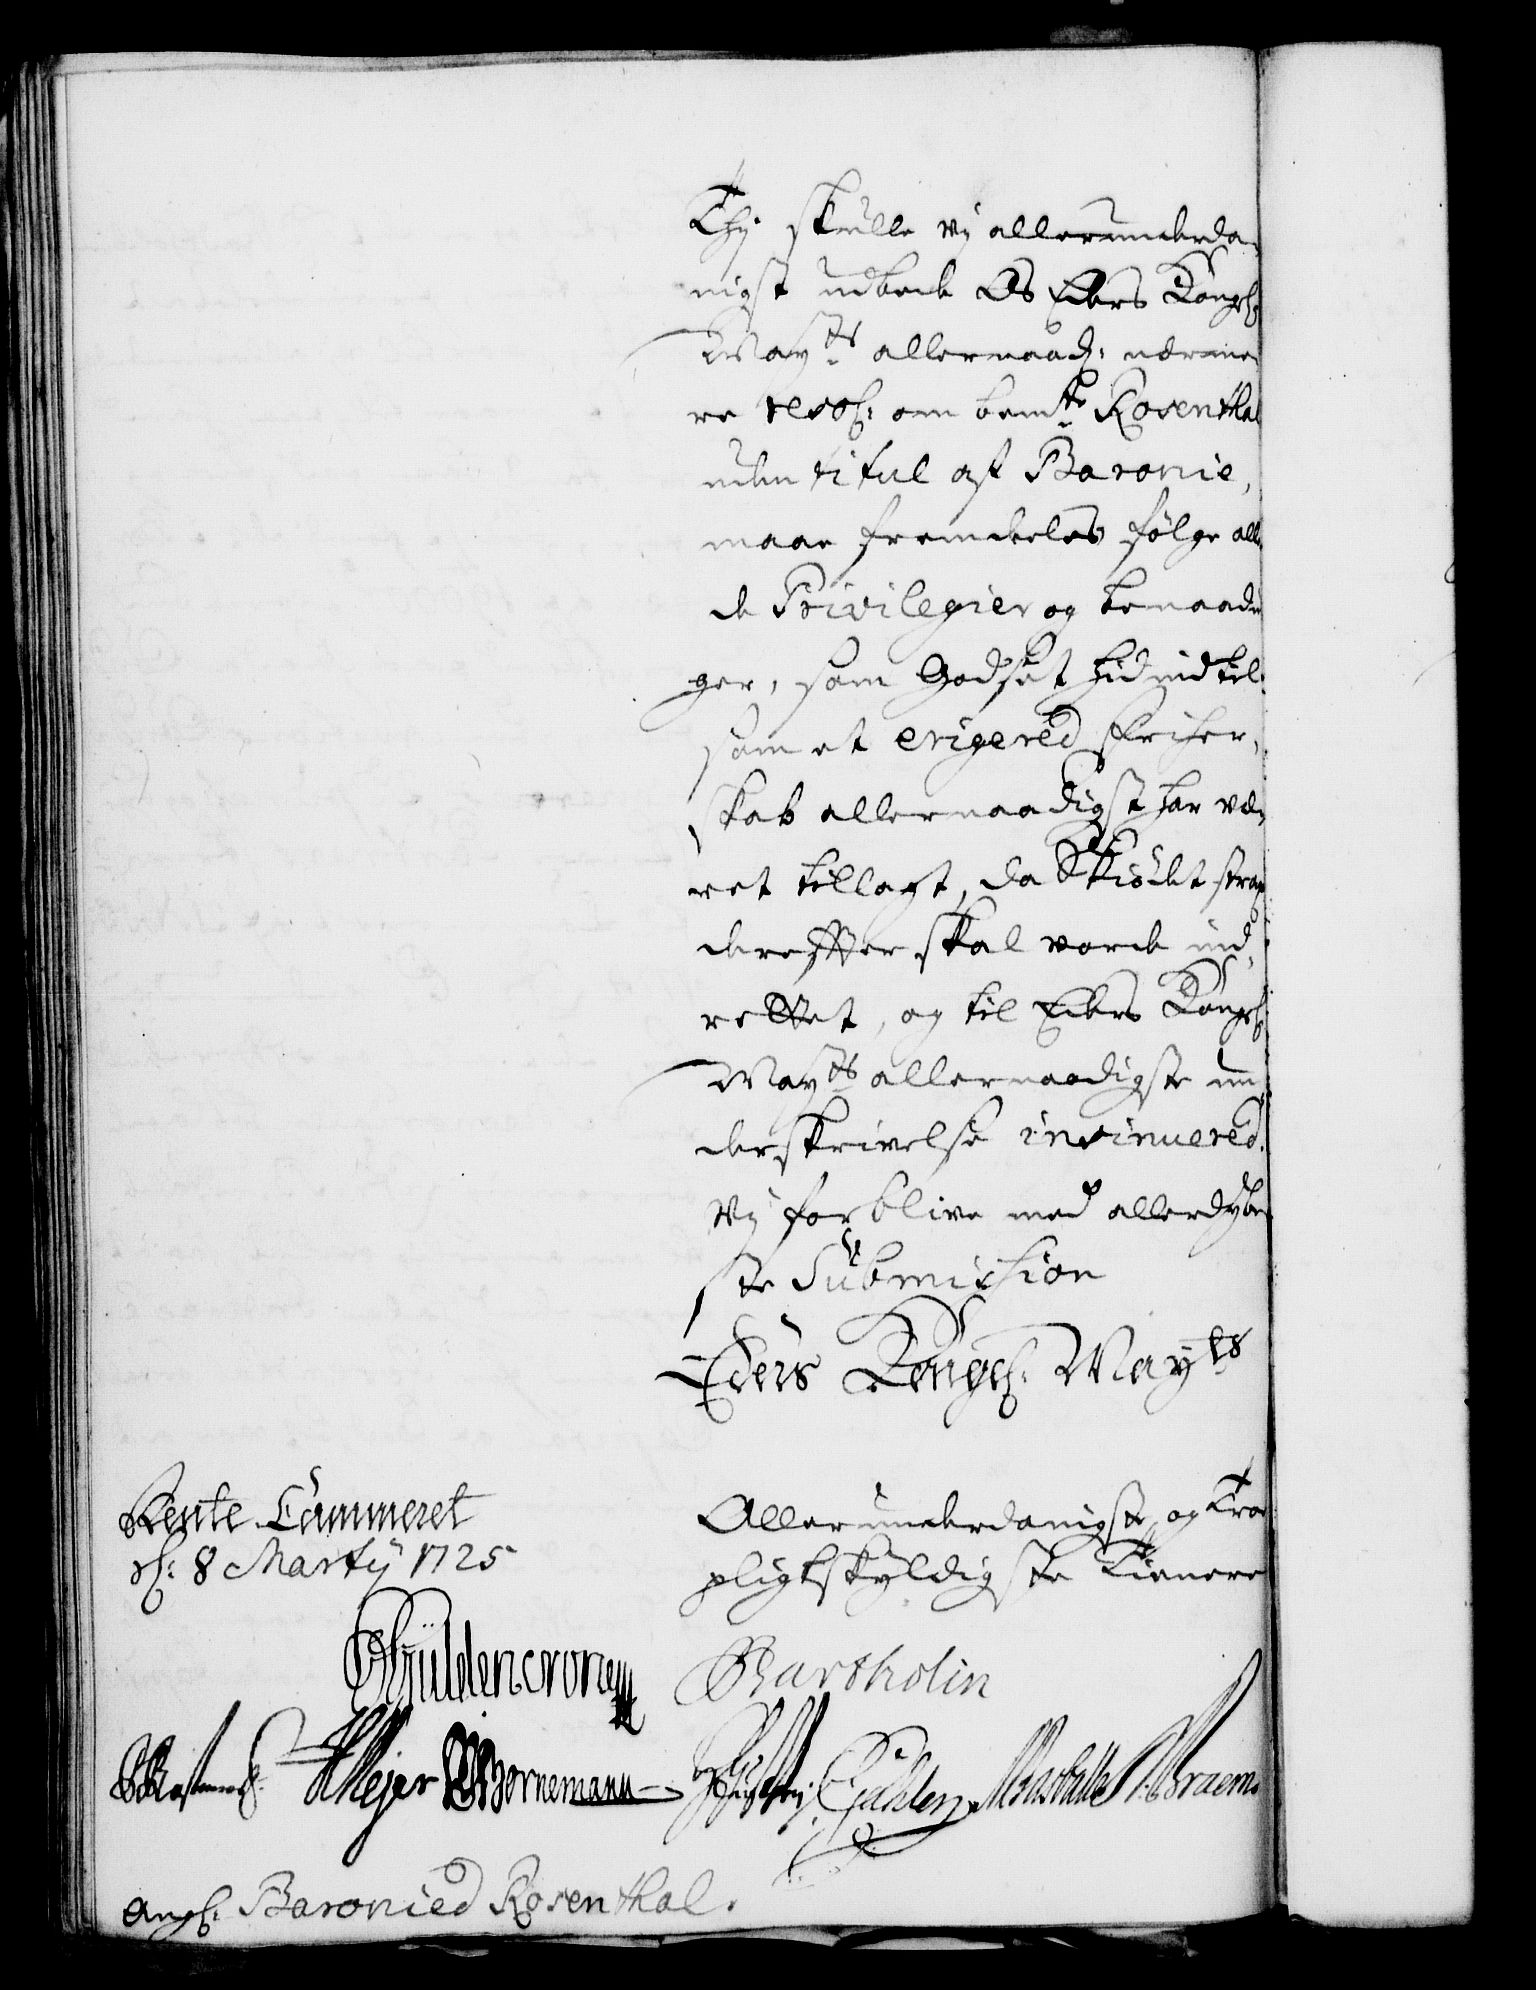 Thj skulle vj allerunderda-
nigst udbede Os Eders Kongl:
May^ts allernaad: nærme-
re resol: om bem^te Rosenthal
uden titul af Baronie,
maae fremdeeles følge alle
de Privilegier og benaadin
ger, som Godset hidindtil
som et erigered Friher-
skab allernaadigst har væ-
ret tillagt, da Skiødet strax
derefter skal vorde ind-
rettet, og til Eders Kongl:
May^ts allernaadigste un-
derskrivelse insinuered.
Vj forblive med allerdybe-
ste Submission
Eders Kongel: May^ts
Allerunderdanigste og Troe
pligtskyldigste Tienere
Rente Cammeret
d: 8 Martij 1725
Gÿldencrone
Bartholin
HMejer Bornemann
Braem
Ang: Baroniet Rosenthal.